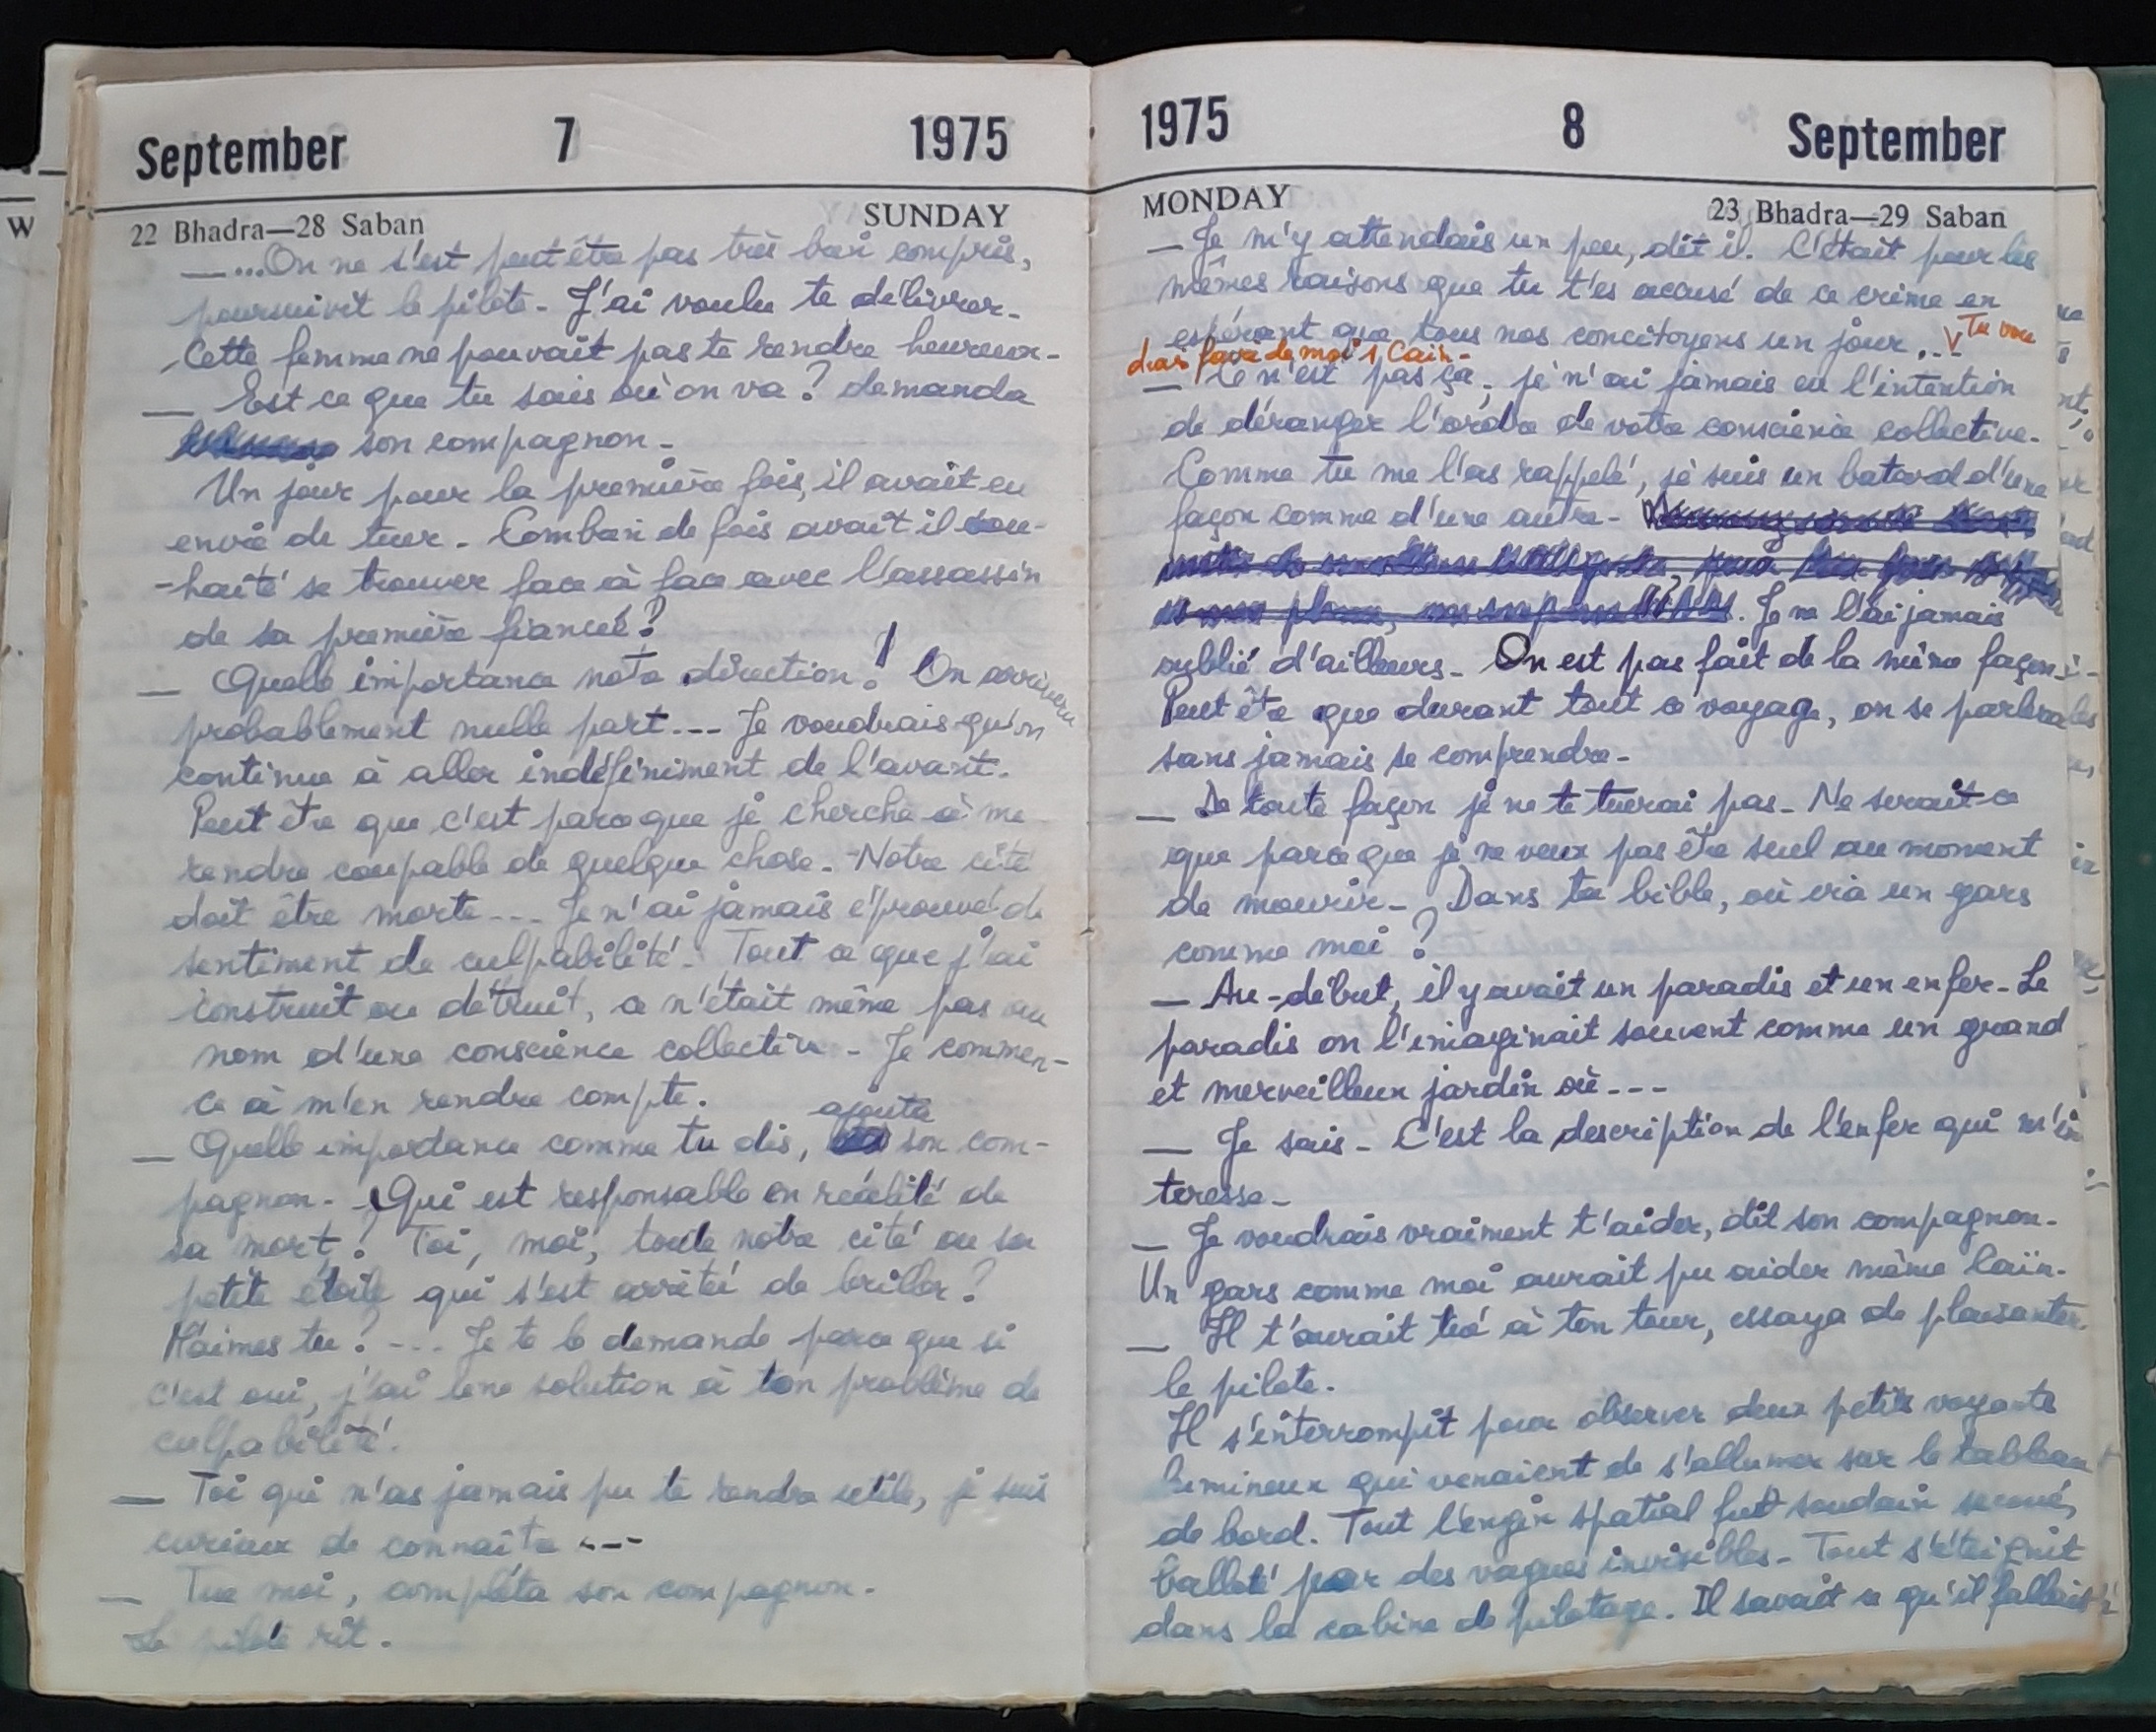 September 7 1975
22 Bhadra—28 Saban SUNDAY
— ...On ne s'est peut être pas très bien compris,
poursuivit le pilote. J'ai voulu te délivrer.
Cette femme ne pouvait pas te rendre heureux.
— Est ce que tu sais où on va ? demanda
son compagnon.
Un jour pour la première fois, il avait eu
envie de tuer. Combien de fois avait il sou-
-haité se trouver face à face avec l'assassin
de sa première fiancée ?
— Quelle importance notre direction ! On arrivera
probablement nulle part... Je voudrais qu'on
continue à aller indéfiniment de l'avant.
Peut être que c'est parce que je cherche à me
rendre coupable de quelque chose. Notre cité
doit être morte... Je n'ai jamais éprouvé de
sentiment de culpabilité. Tout ce que j'ai
construit ou détruit, ce n'était même pas au
nom d'une conscience collective. Je commen-
ce à m'en rendre compte.
— Quelle importance comme tu dis, ajouta son com-
pagnon. Qui est responsable en réalité de
sa mort ? Toi, moi, toute notre cité ou sa
petite étoile qui s'est arrêté de briller ?
M'aimes tu ? ... Je te le demande parce que si
c'est oui, j'ai une solution à ton problème de
culpabilité.
— Toi qui n'as jamais pu te rendre utile, je suis
curieux de connaître ...
— Tue moi, compléta son compagnon.
Le pilote rit.
1975 8 September
MONDAY 23 Bhadra—29 Saban
— Je m'y attendais un peu, dit il. C'était pour les
mêmes raisons que tu t'es accusé de ce crime en
espérant que tous nos concitoyens un jour ... Tu vou
drais faire de moi Cain.
— Ce n'est pas ça, je n'ai jamais eu l'intention
de déranger l'ordre de votre conscience collective.
Comme tu me l'as rappelé, je suis un batard d'une
façon comme d'une autre.
Je ne l'ai jamais
oublié d'ailleurs. On est pas fait de la même façon.
Peut être que durant tout ce voyage, on se parlera
sans jamais se comprendre.
— De toute façon je ne te tuerai pas. Ne serait-ce
que parce que je ne veux pas être seul au moment
de mourir. Dans ta bible, où un gars
comme moi ?
— Au début, il y avait un paradis et un enfer. Le
paradis on l'imaginait souvent comme un grand
et merveilleux jardin où ...
— Je sais. C'est la description de l'enfer qui m'in
teresse.
— Je voudrais vraiment t'aider, dit son compagnon.
Un gars comme moi aurait pu aider même Caïn.
— Il t'aurait tué à ton tour, essaya de plaisanter
le pilote.
Il s'interrompit pour observer deux petits voyants
lumineux qui venaient de s'allumer sur le tableau
de bord. Tout l'engin spatial fut soudain secoué,
balloté par des vagues invisibles. Tout s'éteignit
dans la cabine de pilotage. Il savait ce qu'il fallait